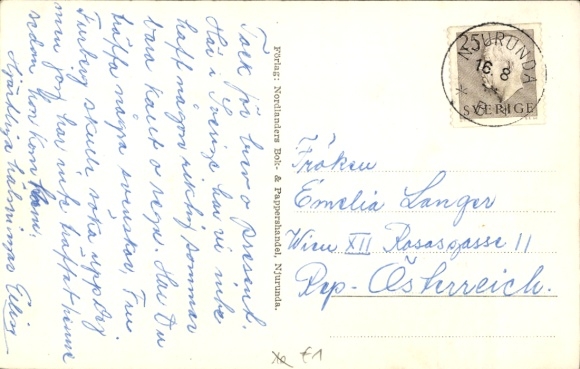 Tack för brev o present.
Här i Sverige har vi inte
haft någon riktig sommar
bara kallt o regn. Har Du
träffa några svenskar, Fru
Furberg skulle söka upp Dej
men jag har inte träffat henne
sedan hon kom hem.
Hjärtliga hälsningar
Förlag: Nordlanders Bok- & Pappershandel, Njurunda.
25
NJURUNDA
16. 8
SVERIGE
Fröken
Emelia Langer
Wien XII Rosasgasse 11
Rep- Österreich.
€1